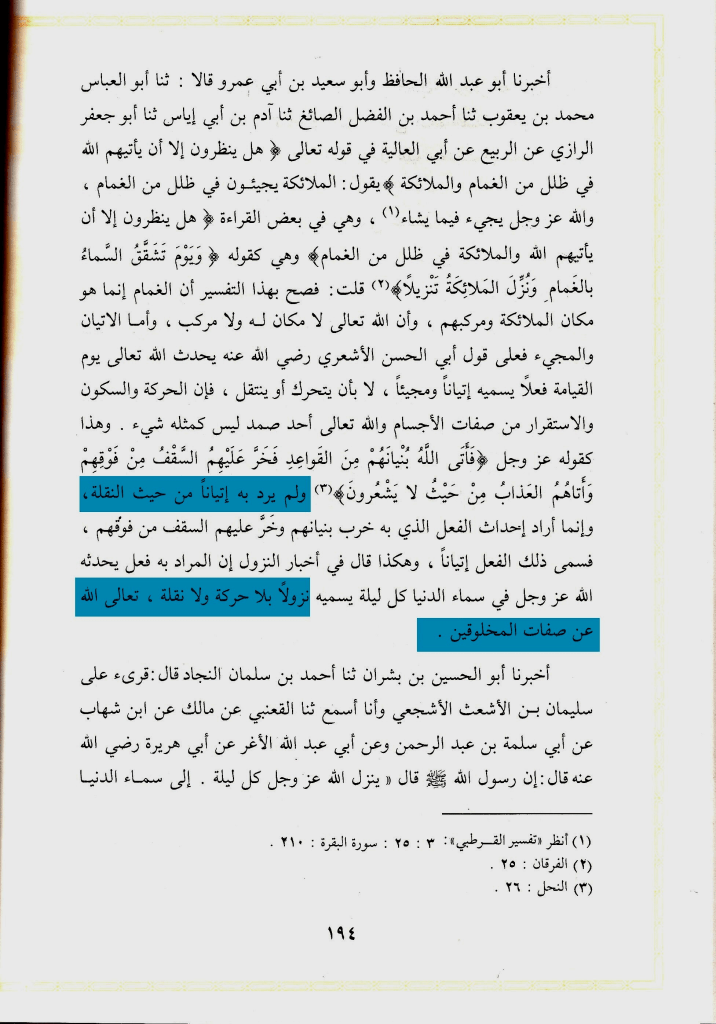 أخبرنا أبو عبد الله الحافظ وأبو سعيد بن أبي عمرو قالا : ثنا أبو العباس
محمد بن يعقوب ثنا أحمد بن الفضل الصائغ ثنا آدم بن أبي إياس ثنا أبو جعفر
الرازي عن الربيع عن أبي العالية في قوله تعالى ﴿ هل ينظرون إلا أن يأتيهم الله
في ظلل من الغمام والملائكة ﴾ يقول : الملائكة يجيئون في ظلل من الغمام ،
والله عز وجل يجيء فيما يشاء(١) ، وهي في بعض القراءة ﴿ هل ينظرون إلا أن
يأتيهم الله والملائكة في ظلل من الغمام﴾ وهي كقوله ﴿ وَيَوْمَ تَشَقَّقُ السَّماءُ
بالغَمام وَنُزِّلَ المَلائِكَةُ تَنْزيلاً﴾(٢) قلت : فصح بهذا التفسير أن الغمام إنما هو
مكان الملائكة ومركبهم ، وأن الله تعالى لا مكان له ولا مركب ، وأما الاتيان
والمجيء فعلى قول أبي الحسن الأشعري رضي الله عنه يحدث الله تعالى يوم
القيامة فعلاً يسميه إتياناً ومجيئاً ، لا بأن يتحرك أو ينتقل ، فإن الحركة والسكون
والاستقرار من صفات الأجسام والله تعالى أحد صمد ليس كمثله شيء . وهذا
كقوله عز وجل ﴿فَأَتَى اللَّهُ بُنْيانَهُمْ مِنَ القَواعِدِ فَخَرَّ عَلَيْهِمُ السَّقْفُ مِنْ فَوْقِهِمْ
وَأَتاهُمُ العَذابُ مِنْ حَيْثُ لا يَشْعُرونَ﴾(٣) ولم يرد به إتياناً من حيث النقلة ،
وإنما أراد إحداث الفعل الذي به خرب بنيانهم وخَرَّ عليهم السقف من فوقهم ،
فسمى ذلك الفعل إتياناً ، وهكذا قال في أخبار النزول إن المراد به فعل يحدثه
الله عز وجل في سماء الدنيا كل ليلة يسميه نزولاً بلا حركة ولا نقلة ، تعالى الله
عن صفات المخلوقين .
أخبرنا أبو الحسين بن بشران ثنا أحمد بن سلمان النجاد قال : قرىء على
سليمان بن الأشعث الأشجعي وأنا أسمع ثنا القعنبي عن مالك عن ابن شهاب
عن أبي سلمة بن عبد الرحمن وعن أبي عبد الله الأغر عن أبي هريرة رضي الله
عنه قال : إن رسول الله ﷺ قال « ينزل الله عز وجل كل ليلة . إلى سماء الدنيا
(١) أنظر «تفسير القرطبي» : ٣ : ٢٥ : سورة البقرة : ٢١٠ .
(٢) الفرقان : ٢٥ .
(٣) النحل : ٢٦ .
١٩٤